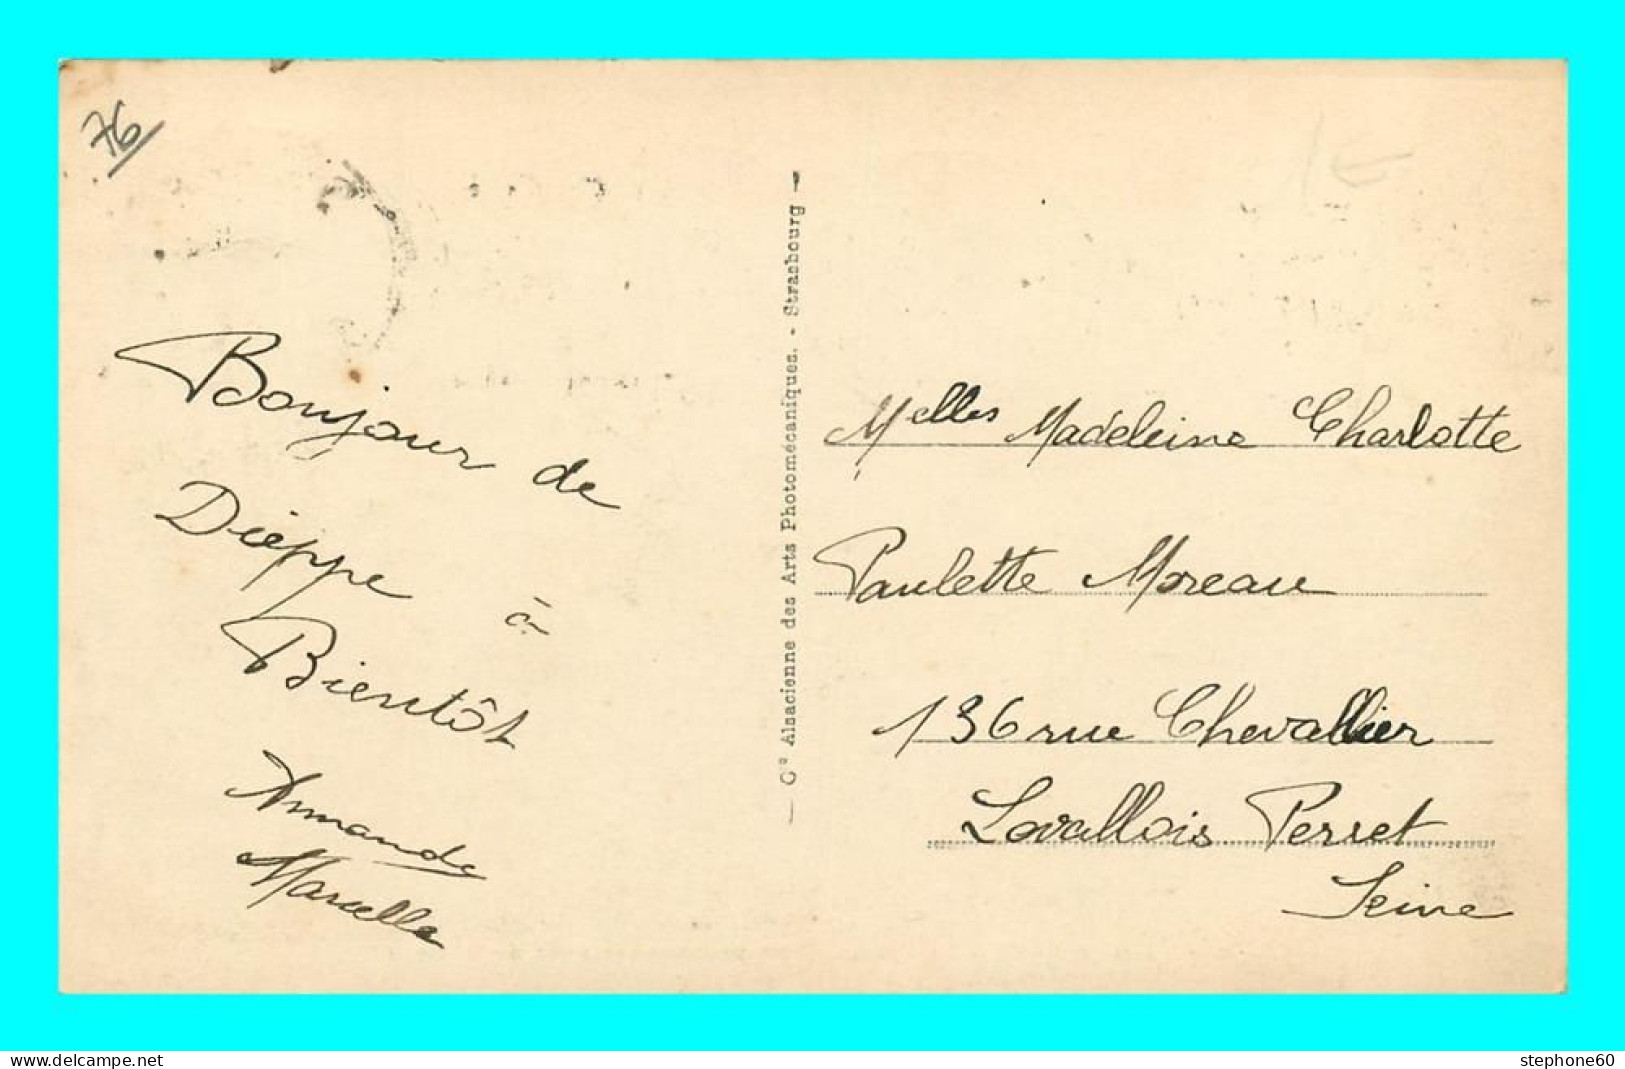 76
Bonjour de
Dieppe à
Bientôt
Armande
Marcelle
— Cie Alsacienne des Arts Photomécaniques. - Strasbourg —
Melles Madeleine Charlotte
Paulette Moreau
136 rue Chevallier
Levallois Perret
Seine
www.delcampe.net
stephone60